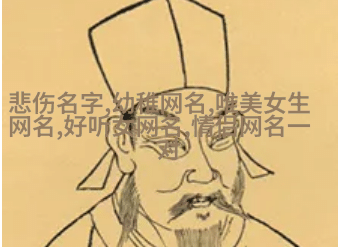 悲伤名字,幼稚网名,唯美女生
网名,好听的网名,情侣网名一
对